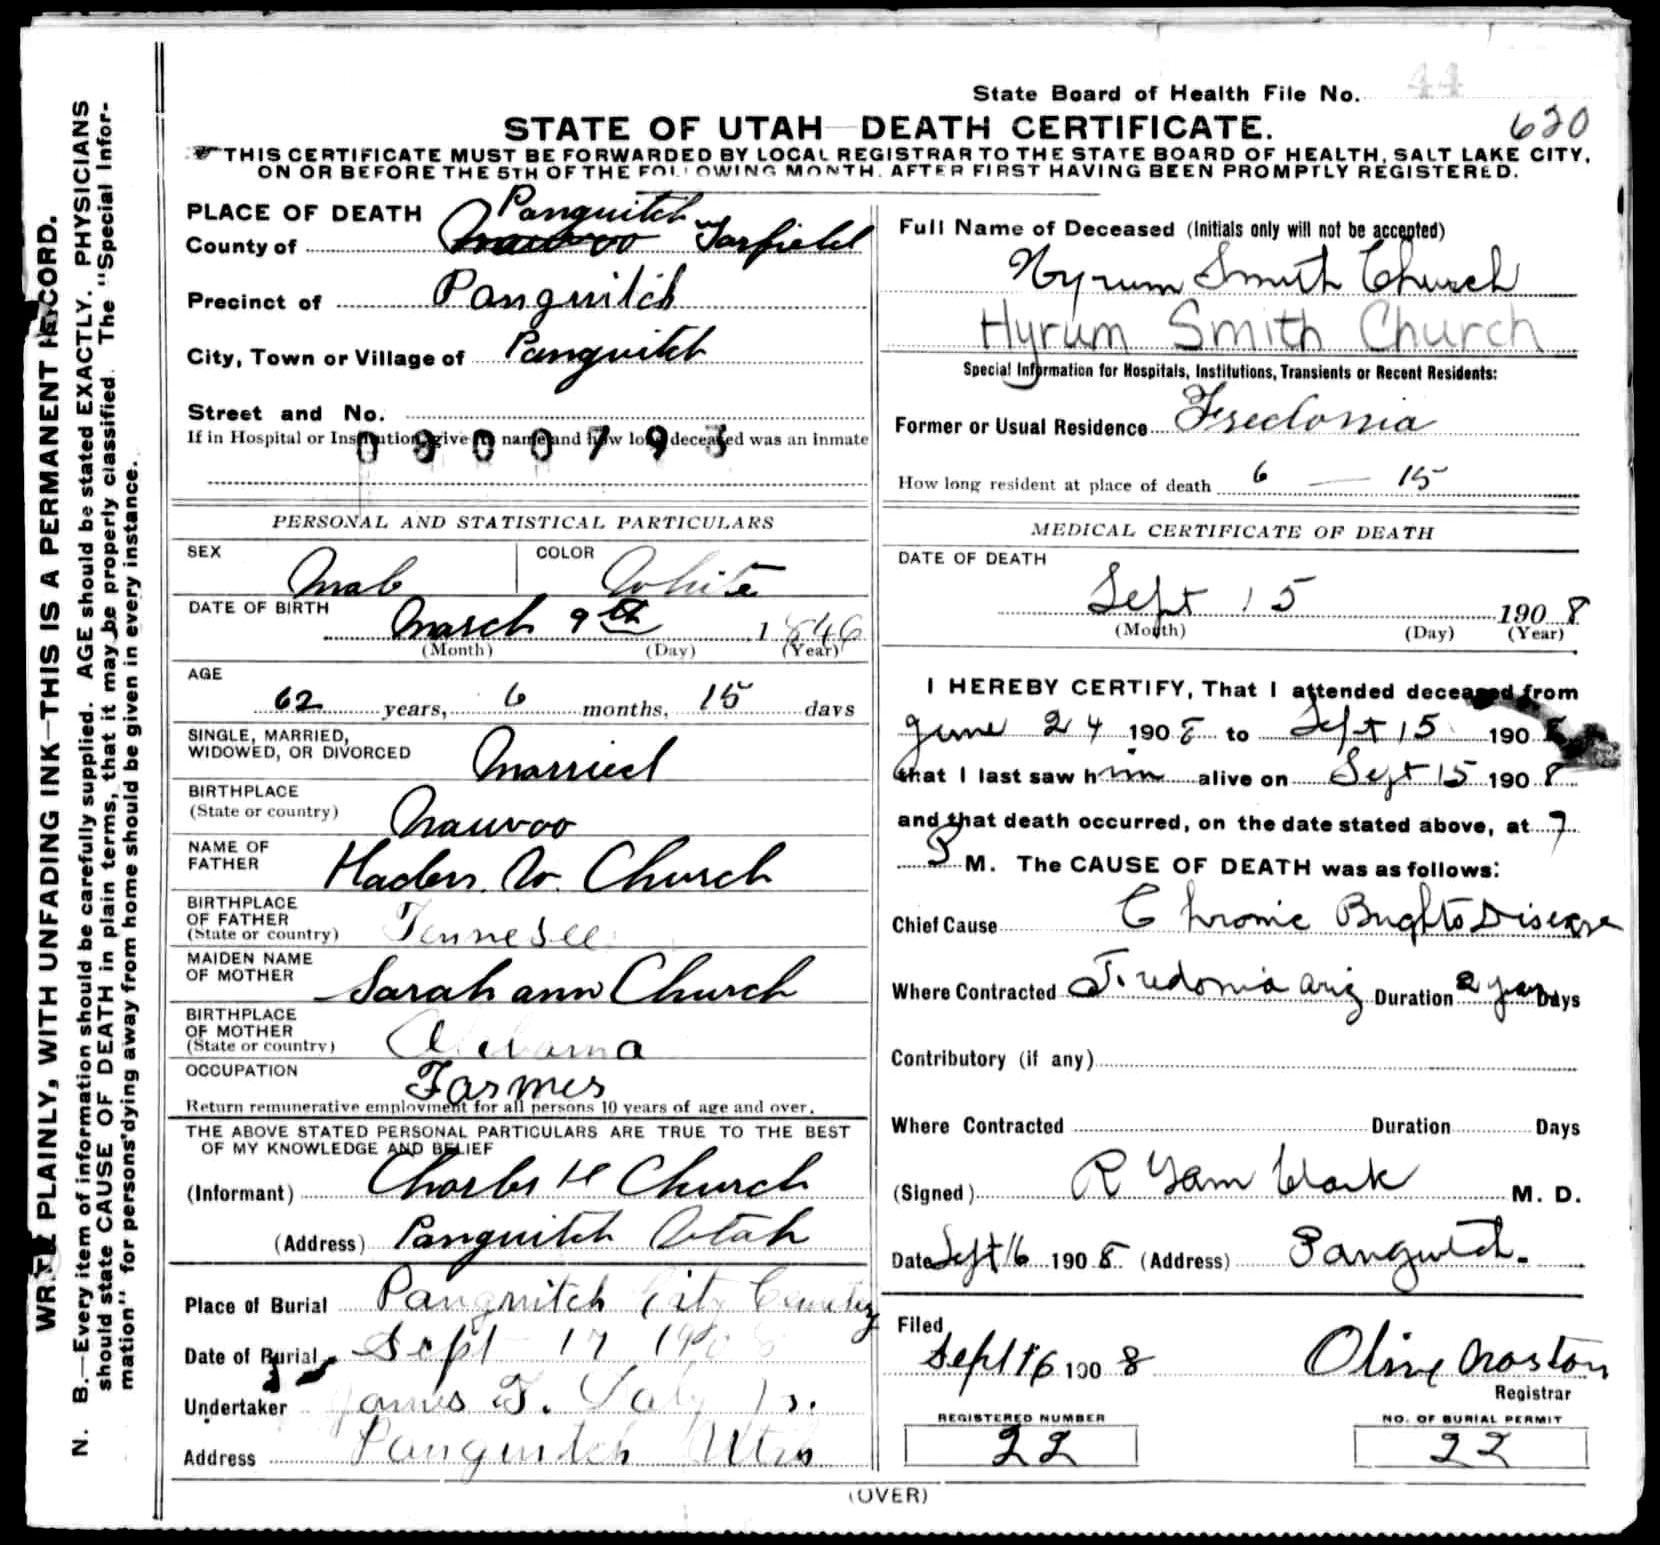 State Board of Health File No. 44
STATE OF UTAH—DEATH CERTIFICATE. 620
THIS CERTIFICATE MUST BE FORWARDED BY LOCAL REGISTRAR TO THE STATE BOARD OF HEALTH, SALT LAKE CITY,
ON OR BEFORE THE 5TH OF THE FOLLOWING MONTH, AFTER FIRST HAVING BEEN PROMPTLY REGISTERED.
WRITE PLAINLY, WITH UNFADING INK—THIS IS A PERMANENT RECORD.
N. B.—Every item of information should be carefully supplied. AGE should be stated EXACTLY. PHYSICIANS
should state CAUSE OF DEATH in plain terms, that it may be properly classified. The "Special Infor-
mation" for persons dying away from home should be given in every instance.
PLACE OF DEATH Panguitch
County of Nauvoo Garfield
Precinct of Panguitch
City, Town or Village of Panguitch
Street and No.
If in Hospital or Institution, give its name and how long deceased was an inmate
0300793
PERSONAL AND STATISTICAL PARTICULARS
SEX COLOR
Male White
DATE OF BIRTH
March 9th 1846
(Month) (Day) (Year)
AGE
62 years, 6 months, 15 days
SINGLE, MARRIED,
WIDOWED, OR DIVORCED Married
BIRTHPLACE
(State or country) Nauvoo
NAME OF
FATHER Haden W. Church
BIRTHPLACE
OF FATHER
(State or country) Tennesee
MAIDEN NAME
OF MOTHER Sarah ann Church
BIRTHPLACE
OF MOTHER
(State or country) Alabama
OCCUPATION Farmer
Return remunerative employment for all persons 10 years of age and over.
THE ABOVE STATED PERSONAL PARTICULARS ARE TRUE TO THE BEST
OF MY KNOWLEDGE AND BELIEF
(Informant) Charles H Church
(Address) Panguitch Utah
Place of Burial Panguitch City Cemetey
Date of Burial Sept 17 1908
Undertaker James T. Daly Jr.
Address Panguitch Utah
Full Name of Deceased (Initials only will not be accepted)
Hyrum Smith Church
Hyrum Smith Church
Special Information for Hospitals, Institutions, Transients or Recent Residents:
Former or Usual Residence Fredonia
How long resident at place of death 6 — 15
MEDICAL CERTIFICATE OF DEATH
DATE OF DEATH
Sept 15 1908
(Month) (Day) (Year)
I HEREBY CERTIFY, That I attended deceased from
June 24 1908 to Sept 15 1908
that I last saw him alive on Sept 15 1908
and that death occurred, on the date stated above, at 7
P M. The CAUSE OF DEATH was as follows:
Chief Cause Chronic Brights Disease
Where Contracted Fredonia Ariz Duration 2 years Days
Contributory (if any)
Where Contracted Duration Days
(Signed) R Clark M. D.
Date Sept 16 1908 (Address) Panguitch.
Filed
Sept 16 1908 Olive
Registrar
REGISTERED NUMBER NO. OF BURIAL PERMIT
22 22
(OVER)